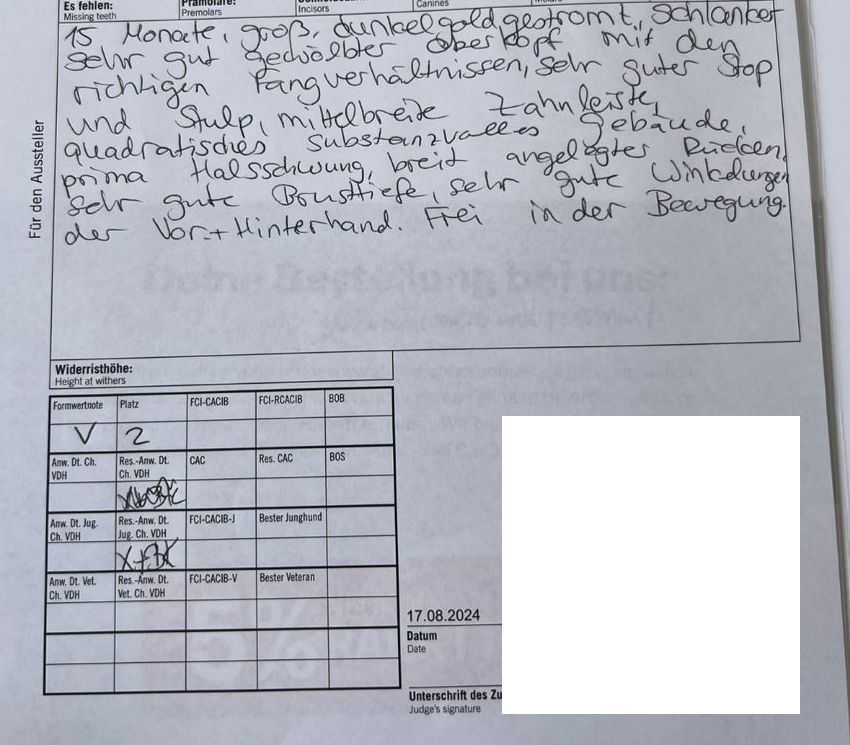 Es fehlen:
Missing teeth
Prämolare:
Premolars
Incisors
Canines
Für den Aussteller
15 Monate, groß, dunkelgoldgestromt, schlanker
sehr gut gewölbter Oberkopf mit den
richtigen Fangverhältnissen, sehr guter Stop
und Stulp, mittelbreite Zahnleiste,
quadratisches substanzvolles Gebäude,
prima Halsschwung, breit angelegter Rücken,
sehr gute Brusttiefe, sehr gute Winkelungen
der Vor.+ Hinterhand. Frei in der Bewegung.
Widerristhöhe:
Height at withers
Formwertnote Platz FCI-CACIB FCI-RCACIB BOB
V 2
Anw. Dt. Ch. VDH Res.-Anw. Dt. Ch. VDH CAC Res. CAC BOS
Anw. Dt. Jug. Ch. VDH Res.-Anw. Dt. Jug. Ch. VDH FCI-CACIB-J Bester Junghund
Anw. Dt. Vet. Ch. VDH Res.-Anw. Dt. Vet. Ch. VDH FCI-CACIB-V Bester Veteran
17.08.2024
Datum
Date
Unterschrift des Zu
Judge's signature